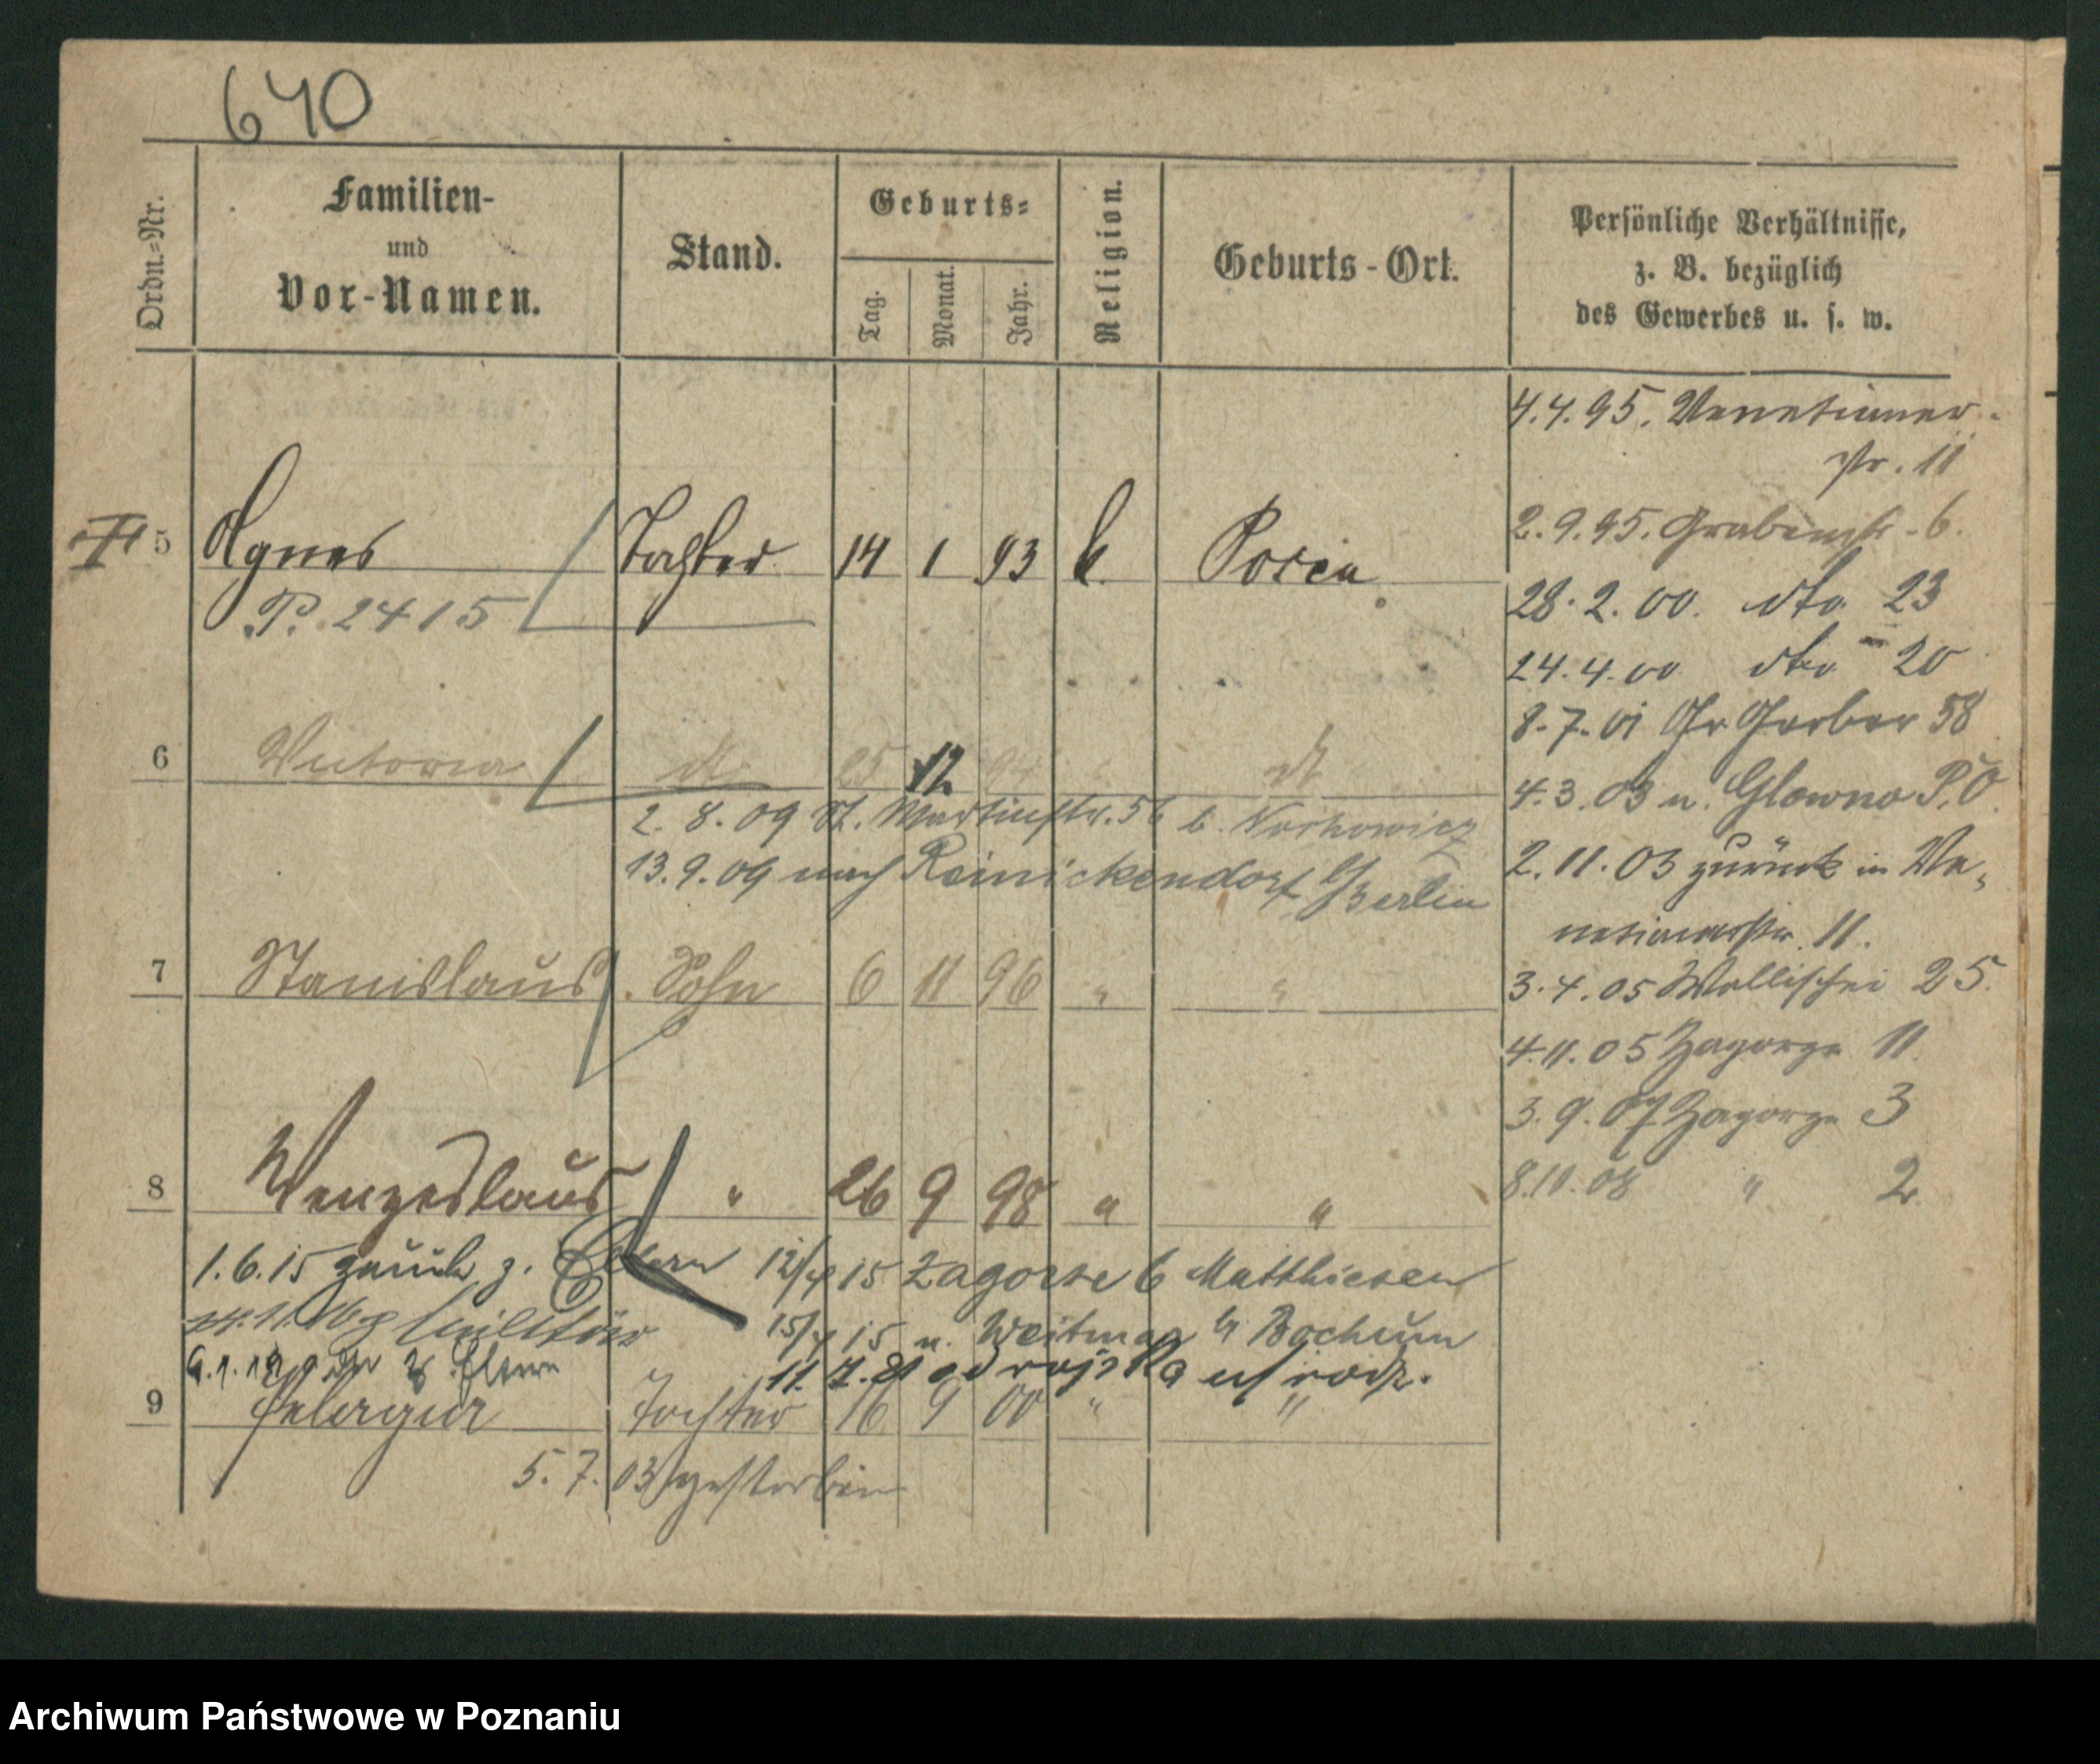 640
Ordn.=Nr.
Familien-
und
Vor-Namen.
Stand.
Geburts=
Tag.
Monat.
Jahr.
Religion.
Geburts-Ort.
Persönliche Verhältnisse,
z. B. bezüglich
des Gewerbes u. s. w.
4.4.95. Venetianer-
str. 11
2.9.95. Grabenstr. 6.
28.2.00. dto. 23
24.4.00 dto 20
8.7.01 Gr Gerber 58
4.3.03 n. Glowno P.O.
2.11.03 zurück in Ve-
netianerstr. 11.
3.4.05 Wallischei 25.
4.11.05 Zagorze 11.
3.9.07 Zagorze 3
8.10.08 " 2
5 Agnes Tochter 14 1 93 k. Posen
P. 2415
6 Victoria dt 25 12 94 " dt
2.8.09 St. Martinstr. 56 b.
13.9.09 nach Reinickendorf b/Berlin
7 Stanislaus Sohn 6 11 96 " "
8 Wenzeslaus " 26 9 98 " "
1.6.15 zurück z. Eltern 12/4 15 Zagorze 6 Matthiesen
Militär 15/4 15 n. Weitmar b/ Bochum
Eltern 11.
9 Pelagia Tochter 16 9 00 " "
5.7.03 gestorben
Archiwum Państwowe w Poznaniu